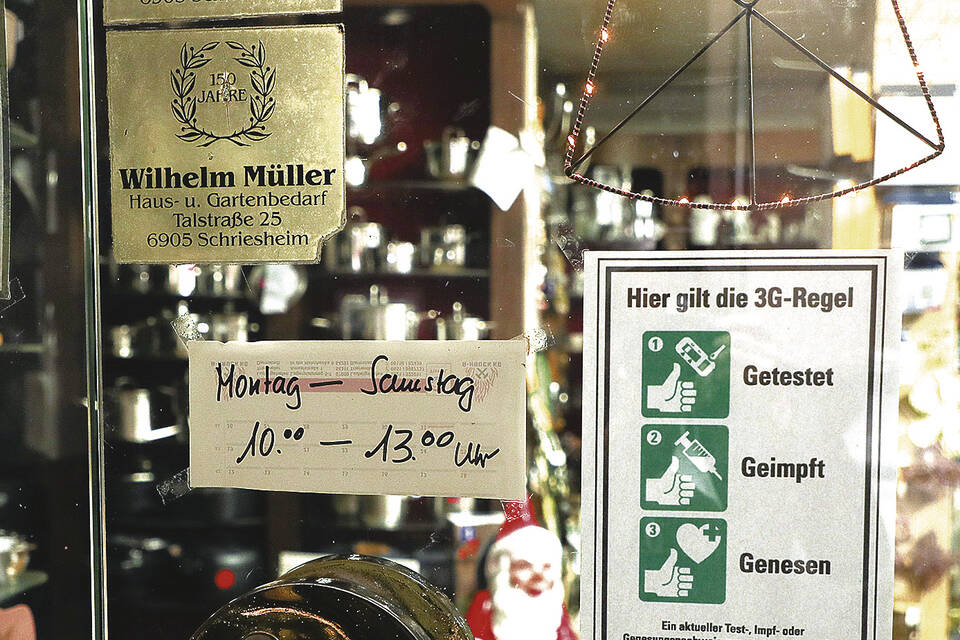 150
JAHRE
Wilhelm Müller
Haus- u. Gartenbedarf
Talstraße 25
6905 Schriesheim
Montag – Samstag
10.⁰⁰ – 13.⁰⁰ Uhr
Hier gilt die 3G-Regel
1 Getestet
2 Geimpft
3 Genesen
Ein aktueller Test-, Impf- oder